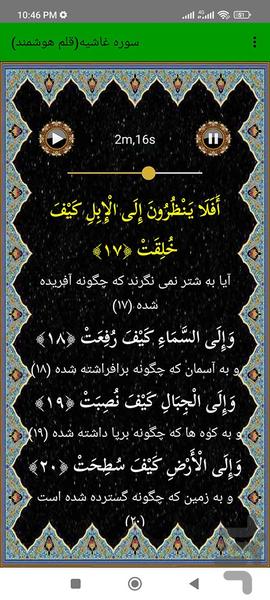 10:46 PM
4G
51
سوره غاشیه(قلم هوشمند)
2m,16s
أَفَلَا يَنْظُرُونَ إِلَى الْإِبِلِ كَيْفَ
خُلِقَتْ ﴿۱۷﴾
آیا به شتر نمی نگرند که چگونه آفریده
شده (۱۷)
وَإِلَى السَّمَاءِ كَيْفَ رُفِعَتْ ﴿۱۸﴾
و به آسمان که چگونه برافراشته شده (۱۸)
وَإِلَى الْجِبَالِ كَيْفَ نُصِبَتْ ﴿۱۹﴾
و به کوه ها که چگونه برپا داشته شده (۱۹)
وَإِلَى الْأَرْضِ كَيْفَ سُطِحَتْ ﴿۲۰﴾
و به زمین که چگونه گسترده شده است
(۲۰)